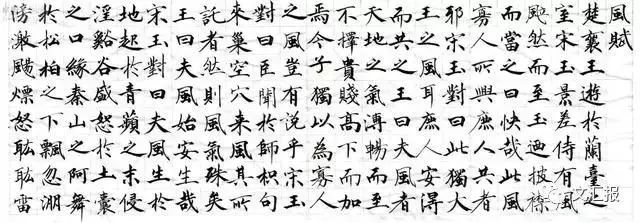 風賦
楚襄王遊於蘭臺之
宮宋玉景差侍有風
颯然而至王迺披襟
而當之曰快哉此風
寡人所與庶人共者
邪宋玉對曰此獨大
王之風耳庶人安得
而共之王曰夫風者
天地之氣溥暢而至
不擇貴賤高下而加
焉今子獨以為寡人
之風豈有說乎宋玉
對曰臣聞於師枳句
來巢空穴來風其所
託者然則風氣殊矣
王曰夫風始安生哉
宋玉對曰夫風生於
地起於青蘋之末侵
淫谿谷盛怒於土囊
之口緣泰山之阿舞
於松柏之下飄忽淜
滂激颺熛怒耾耾雷
文汇报